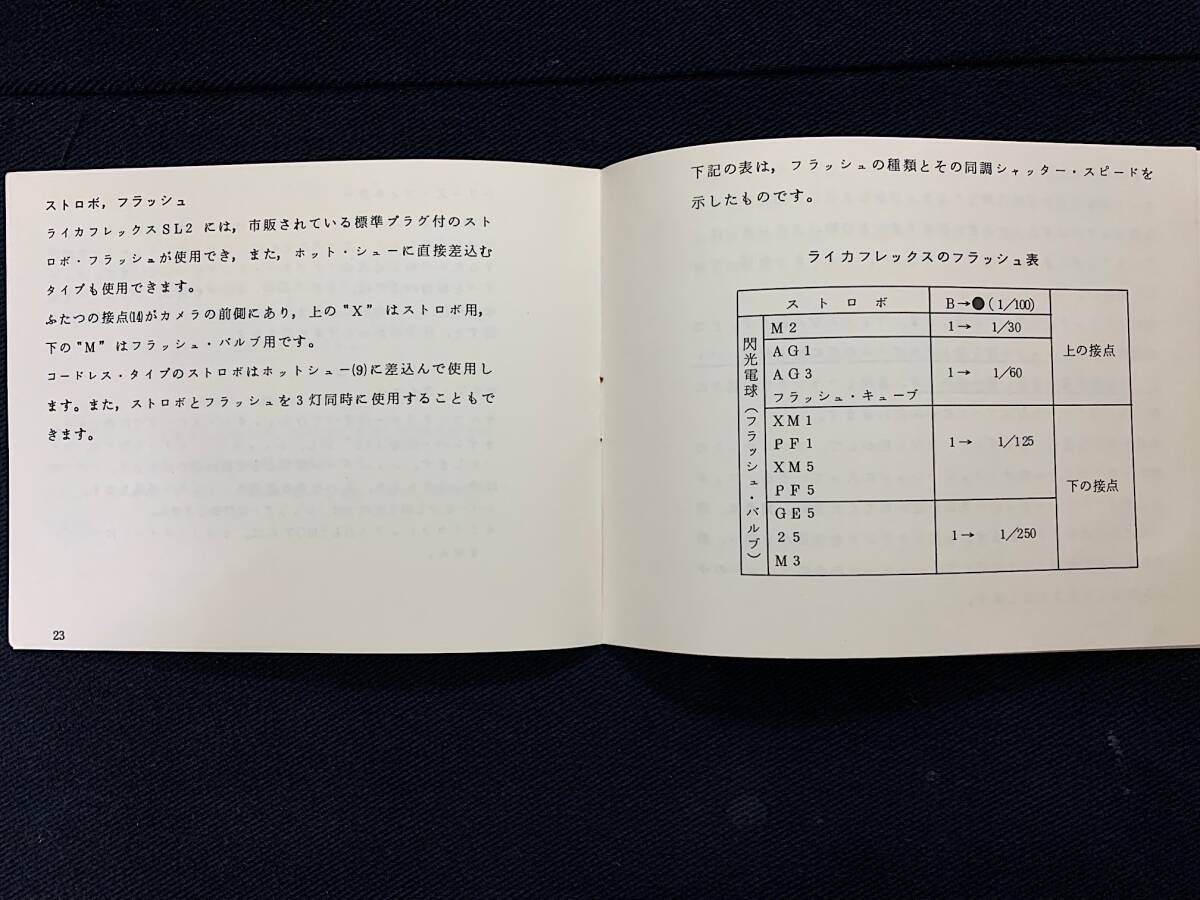 ストロボ，フラッシュ
ライカフレックスSL2には，市販されている標準プラグ付のスト
ロボ・フラッシュが使用でき，また，ホット・シューに直接差込む
タイプも使用できます。
ふたつの接点(14)がカメラの前側にあり，上の"X"はストロボ用，
下の"M"はフラッシュ・バルブ用です。
コードレス・タイプのストロボはホットシュー(9)に差込んで使用し
ます。また，ストロボとフラッシュを3灯同時に使用することもで
きます。
23
下記の表は，フラッシュの種類とその同調シャッター・スピードを
示したものです。
ライカフレックスのフラッシュ表
ストロボ B→●(1/100)
閃光電球(フラッシュ・バルブ)
M2 1→ 1/30
AG1
AG3 1→ 1/60
フラッシュ・キューブ
上の接点
XM1
PF1 1→ 1/125
XM5
PF5
GE5
25 1→ 1/250
M3
下の接点